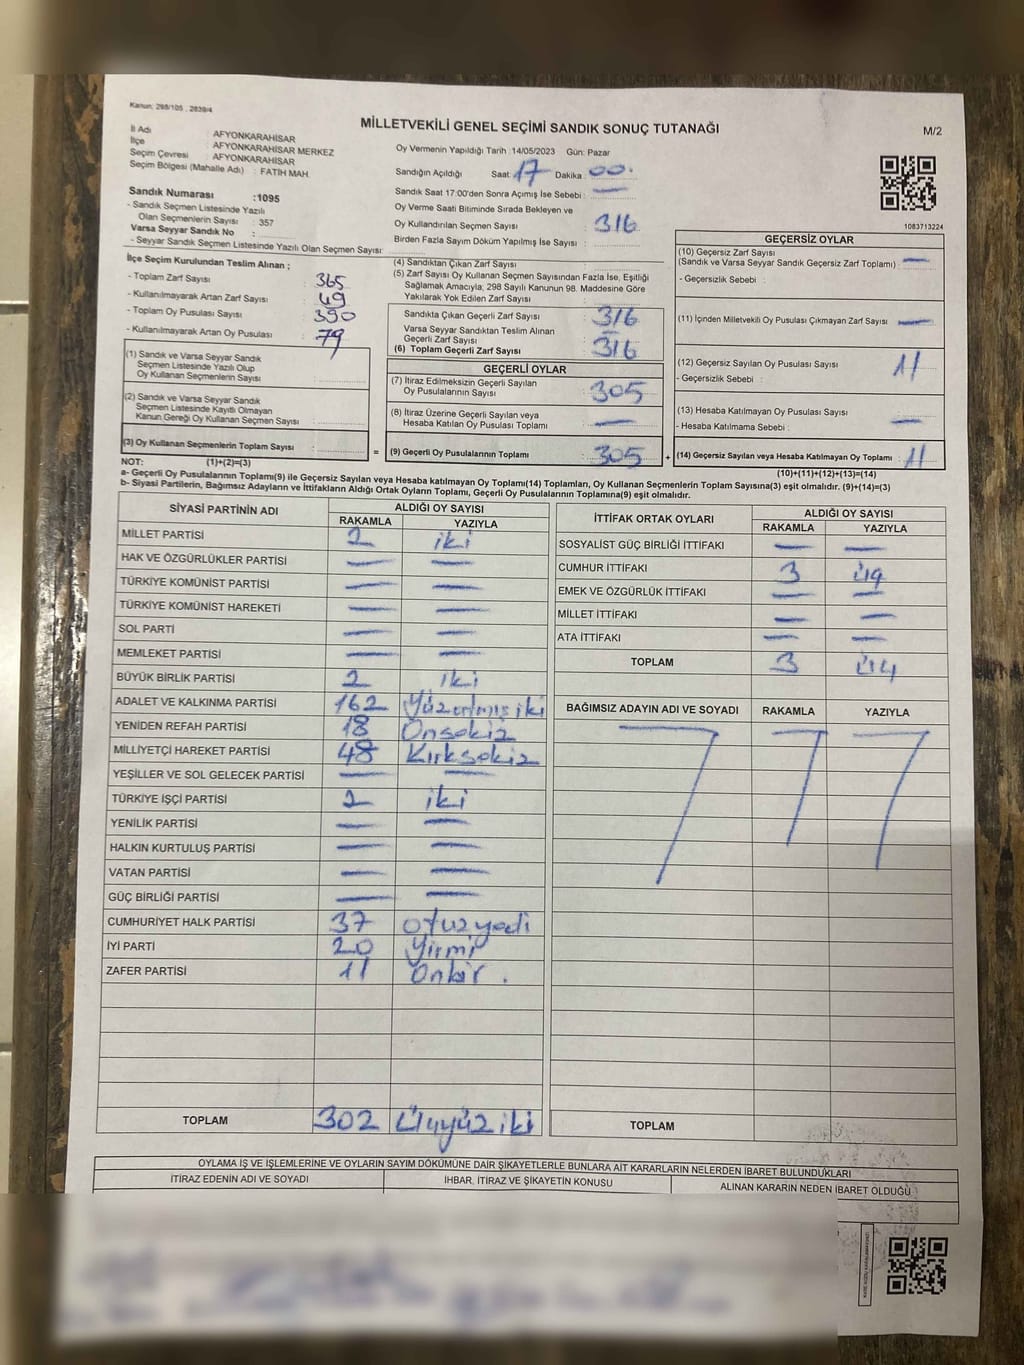 Kanun: 298/105 , 2839/4
MİLLETVEKİLİ GENEL SEÇİMİ SANDIK SONUÇ TUTANAĞI
M/2
İl Adı AFYONKARAHİSAR
İlçe AFYONKARAHİSAR MERKEZ
Seçim Çevresi : AFYONKARAHİSAR
Seçim Bölgesi (Mahalle Adı) : FATİH MAH.
Sandık Numarası :1095
- Sandık Seçmen Listesinde Yazılı
Olan Seçmenlerin Sayısı : 357
Varsa Seyyar Sandık No :
- Seyyar Sandık Seçmen Listesinde Yazılı Olan Seçmen Sayısı:
İlçe Seçim Kurulundan Teslim Alınan ;
- Toplam Zarf Sayısı : 365
- Kullanılmayarak Artan Zarf Sayısı : 49
- Toplam Oy Pusulası Sayısı : 390
- Kullanılmayarak Artan Oy Pusulası : 79
(1) Sandık ve Varsa Seyyar Sandık
Seçmen Listesinde Yazılı Olup
Oy Kullanan Seçmenlerin Sayısı :
(2) Sandık ve Varsa Seyyar Sandık
Seçmen Listesinde Kayıtlı Olmayan
Kanun Gereği Oy Kullanan Seçmen Sayısı :
(3) Oy Kullanan Seçmenlerin Toplam Sayısı :
Oy Vermenin Yapıldığı Tarih :14/05/2023 Gün: Pazar
Sandığın Açıldığı Saat : 17 Dakika : 00.
Sandık Saat 17:00'den Sonra Açımış İse Sebebi : —
Oy Verme Saati Bitiminde Sırada Bekleyen ve
Oy Kullandırılan Seçmen Sayısı : 316
Birden Fazla Sayım Döküm Yapılmış İse Sayısı :
(4) Sandıktan Çıkan Zarf Sayısı :
(5) Zarf Sayısı Oy Kullanan Seçmen Sayısından Fazla İse, Eşitliği
Sağlamak Amacıyla, 298 Sayılı Kanunun 98. Maddesine Göre
Yakılarak Yok Edilen Zarf Sayısı :
Sandıkta Çıkan Geçerli Zarf Sayısı : 316
Varsa Seyyar Sandıktan Teslim Alınan
Geçerli Zarf Sayısı : —
(6) Toplam Geçerli Zarf Sayısı : 316
GEÇERLİ OYLAR
(7) İtiraz Edilmeksizin Geçerli Sayılan
Oy Pusulalarının Sayısı : 305
(8) İtiraz Üzerine Geçerli Sayılan veya
Hesaba Katılan Oy Pusulası Toplamı : —
= (9) Geçerli Oy Pusulalarının Toplamı : 305
1083713224
GEÇERSİZ OYLAR
(10) Geçersiz Zarf Sayısı
(Sandık ve Varsa Seyyar Sandık Geçersiz Zarf Toplamı) : —
- Geçersizlik Sebebi :
(11) İçinden Milletvekili Oy Pusulası Çıkmayan Zarf Sayısı : —
(12) Geçersiz Sayılan Oy Pusulası Sayısı : 11
- Geçersizlik Sebebi :
(13) Hesaba Katılmayan Oy Pusulası Sayısı : —
- Hesaba Katılmama Sebebi :
+ (14) Geçersiz Sayılan veya Hesaba Katılmayan Oy Toplamı : 11
NOT: (1)+(2)=(3) (10)+(11)+(12)+(13)=(14)
a- Geçerli Oy Pusulalarının Toplamı(9) ile Geçersiz Sayılan veya Hesaba katılmayan Oy Toplamı(14) Toplamları, Oy Kullanan Seçmenlerin Toplam Sayısına(3) eşit olmalıdır. (9)+(14)=(3)
b- Siyasi Partilerin, Bağımsız Adayların ve İttifakların Aldığı Ortak Oyların Toplamı, Geçerli Oy Pusulalarının Toplamına(9) eşit olmalıdır.
SİYASİ PARTİNİN ADI ALDIĞI OY SAYISI
RAKAMLA YAZIYLA
MİLLET PARTİSİ 2 iki
HAK VE ÖZGÜRLÜKLER PARTİSİ — —
TÜRKİYE KOMÜNİST PARTİSİ — —
TÜRKİYE KOMÜNİST HAREKETİ — —
SOL PARTİ — —
MEMLEKET PARTİSİ — —
BÜYÜK BİRLİK PARTİSİ 2 iki
ADALET VE KALKINMA PARTİSİ 162 Yüzatmışiki
YENİDEN REFAH PARTİSİ 18 Onsekiz
MİLLİYETÇİ HAREKET PARTİSİ 48 Kırksekiz
YEŞİLLER VE SOL GELECEK PARTİSİ — —
TÜRKİYE İŞÇİ PARTİSİ 2 iki
YENİLİK PARTİSİ — —
HALKIN KURTULUŞ PARTİSİ — —
VATAN PARTİSİ — —
GÜÇ BİRLİĞİ PARTİSİ — —
CUMHURİYET HALK PARTİSİ 37 otuzyedi
İYİ PARTİ 20 Yirmi
ZAFER PARTİSİ 11 Onbir .
TOPLAM 302 Üçyüziki
İTTİFAK ORTAK OYLARI ALDIĞI OY SAYISI
RAKAMLA YAZIYLA
SOSYALİST GÜÇ BİRLİĞİ İTTİFAKI — —
CUMHUR İTTİFAKI 3 üç
EMEK VE ÖZGÜRLÜK İTTİFAKI — —
MİLLET İTTİFAKI — —
ATA İTTİFAKI — —
TOPLAM 3 üç
BAĞIMSIZ ADAYIN ADI VE SOYADI RAKAMLA YAZIYLA
TOPLAM
OYLAMA İŞ VE İŞLEMLERİNE VE OYLARIN SAYIM DÖKÜMÜNE DAİR ŞİKAYETLERLE BUNLARA AİT KARARLARIN NELERDEN İBARET BULUNDUKLARI
İTİRAZ EDENİN ADI VE SOYADI İHBAR, İTİRAZ VE ŞİKAYETİN KONUSU ALINAN KARARIN NEDEN İBARET OLDUĞU